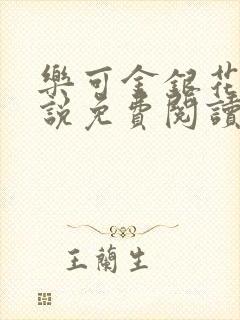 樂可金銀花
說免費閱讀
王蘭生